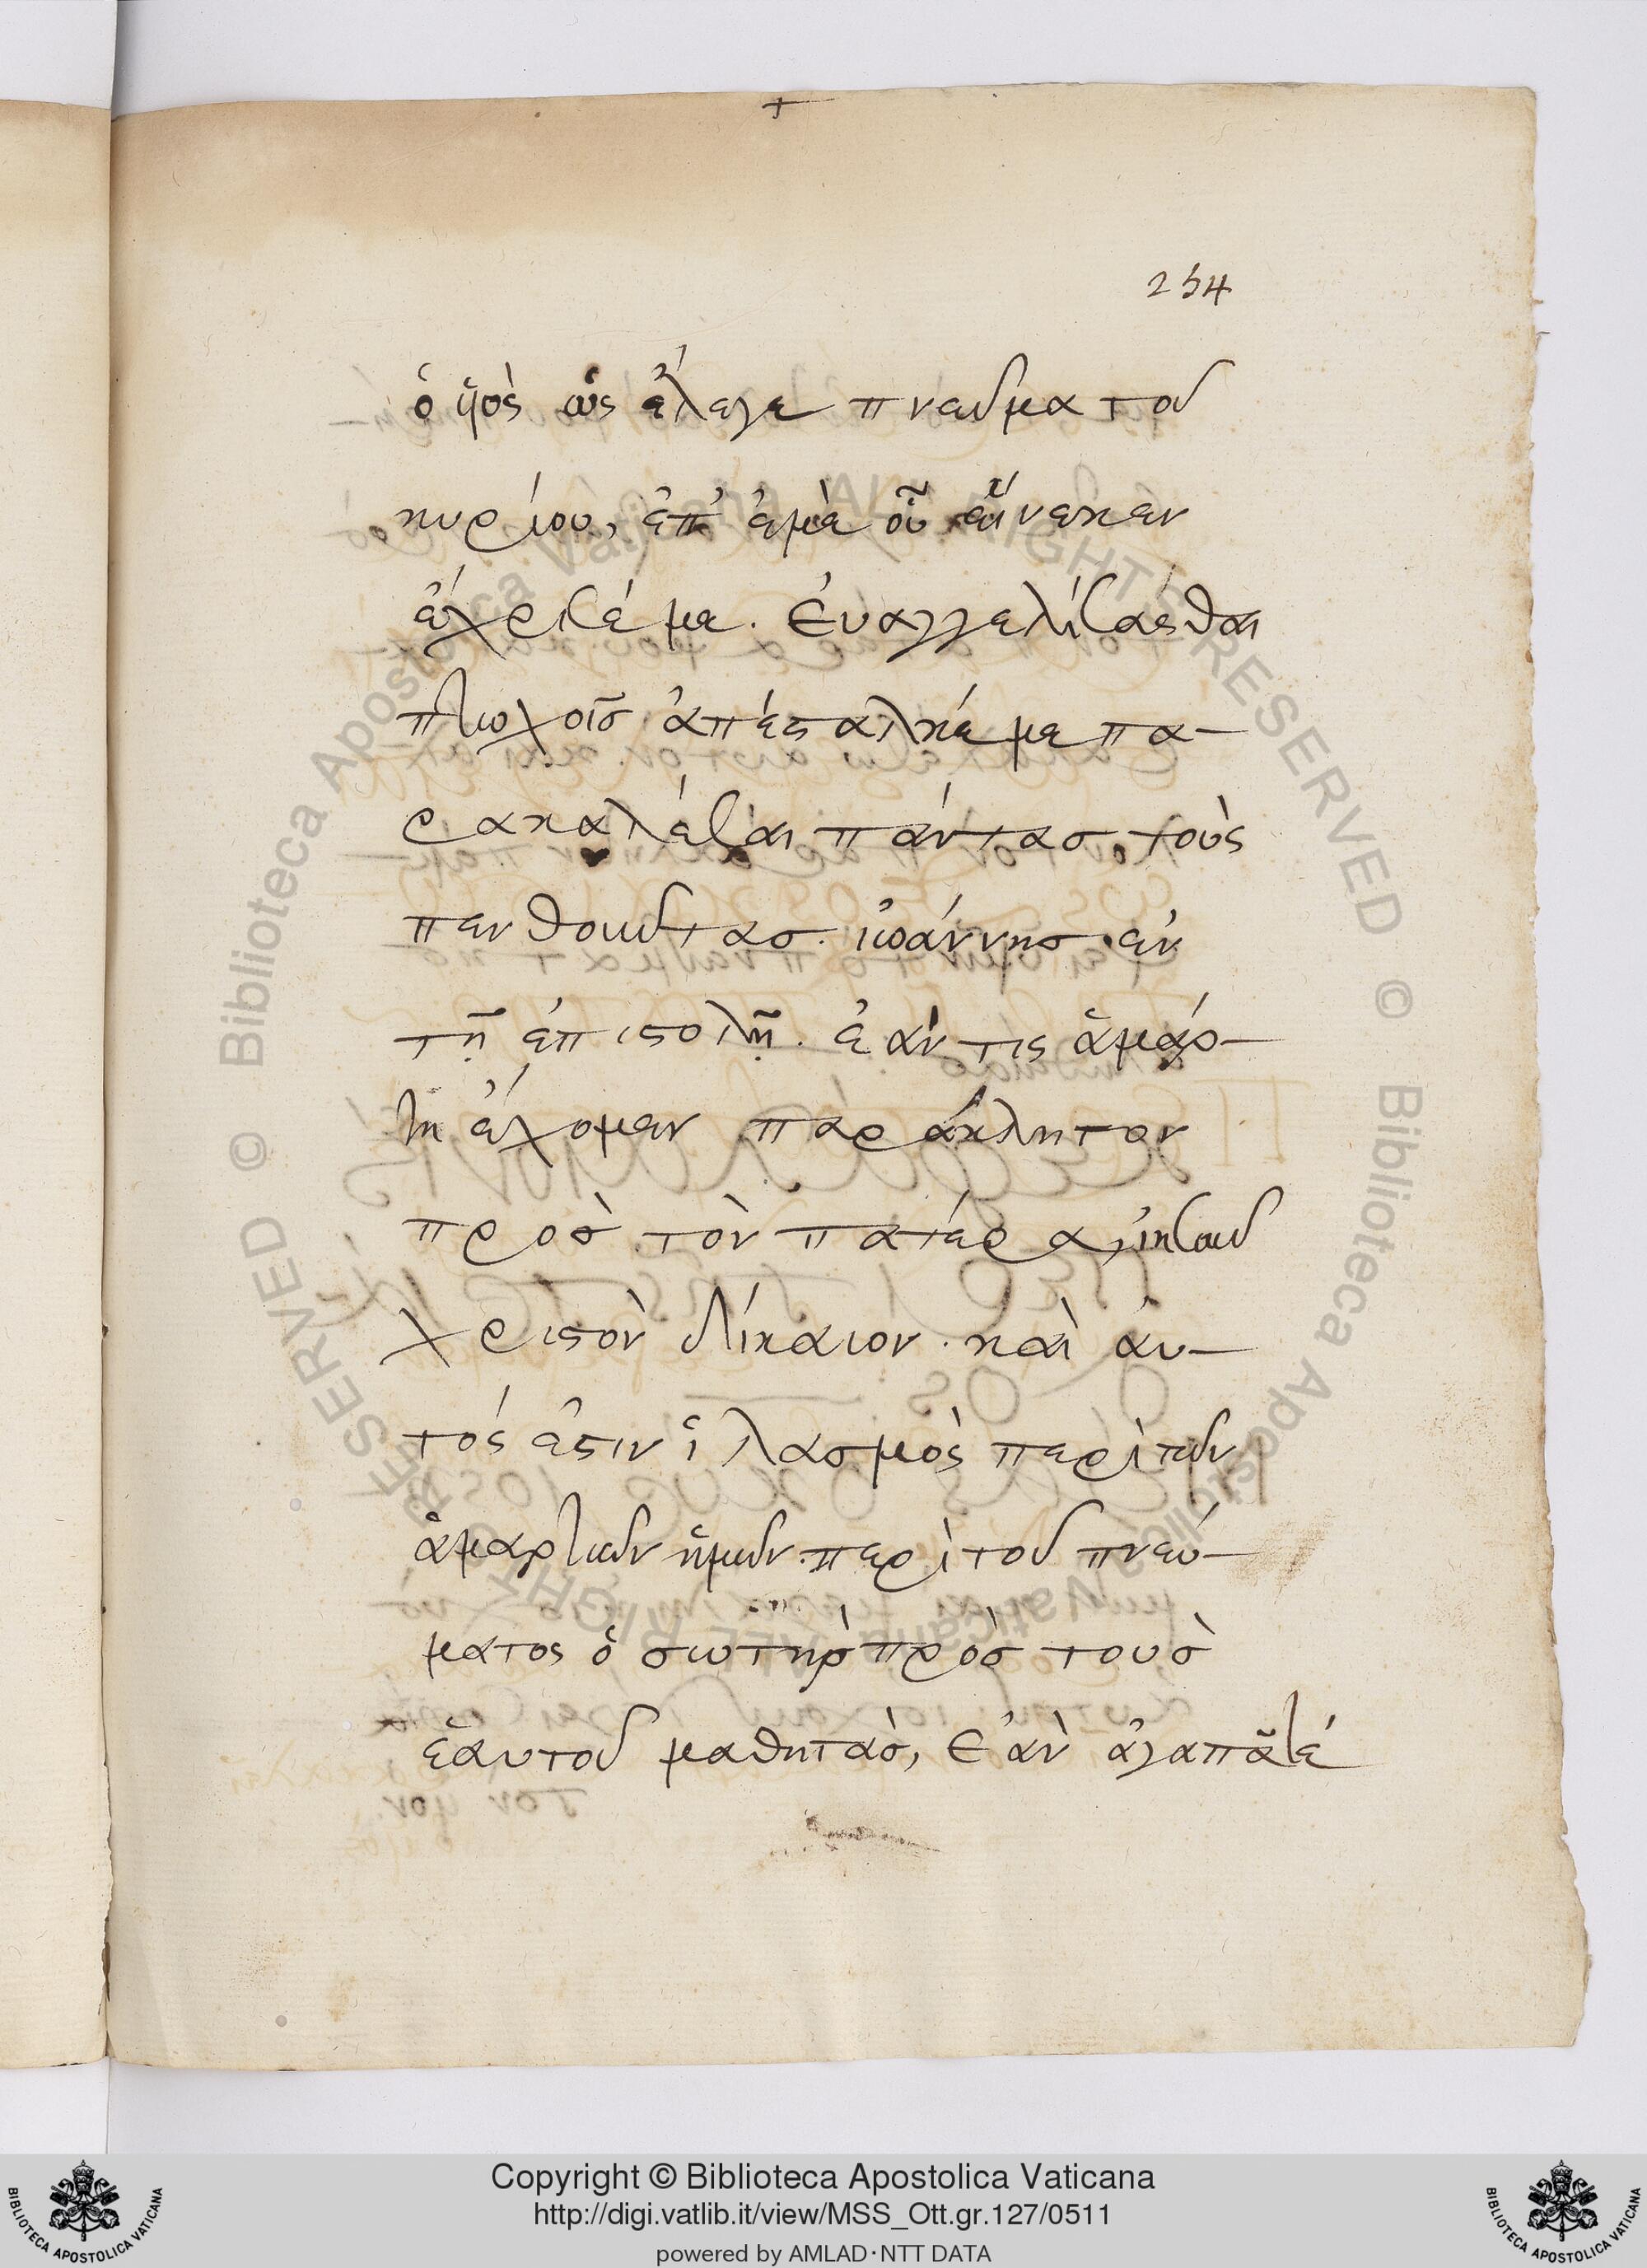 254
ὁ ὑιὸς ὡς ἔλεγε πνεῦμα τοῦ
κυρίου, ἐπ' ἐμὲ οὗ εἵνεκεν
ἔχρισέ με. ἐυαγγελίσασθαι
πτωχοῖσ ἀπέσταλκέ με πα-
ρακαλέσαι πάντασ τοὺς
πενθοῦντασ. ἰωάννησ ἐν
τῇ ἐπιστολῇ. ἐάν τις ἁμάρ-
τη ἔχομεν παράκλητον
πρὸσ τὸν πατέρα, ἰησοῦ
χριστὸν δίκαιον. καὶ ἀυ-
τός ἐστιν ἱλασμὸς περὶ τῶν
ἁμαρτιῶν ἡμῶν. περὶ τοῦ πνεύ-
ματος ὁ σωτὴρ πρὸσ τουσ
ἑαυτοῦ μαθητὰσ, ἐὰν ἀγαπᾶτέ
Copyright © Biblioteca Apostolica Vaticana
http://digi.vatlib.it/view/MSS_Ott.gr.127/0511
powered by AMLAD·NTT DATA
BIBLIOTECA APOSTOLICA VATICANA
BIBLIOTECA APOSTOLICA VATICANA